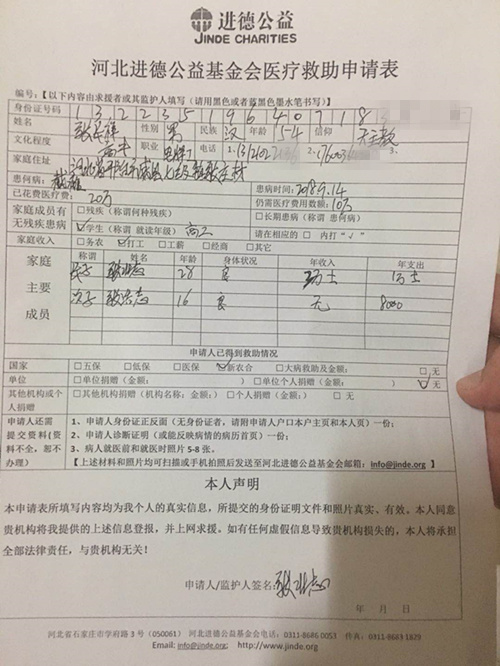 进德公益
JINDE CHARITIES
河北进德公益基金会医疗救助申请表
编号：【以下内容由求援者或其监护人填写（请用黑色或者蓝黑色墨水笔书写）】
身份证号码 1 3 2 2 3 5 1 9 6 4 0 7 1 8
姓名 性别 男 民族 汉 年龄 54 信仰 天主教
文化程度 高中 职业 电话 1. 2. 3.
家庭住址
患何病： 患病时间：2018.9.14
已花费医疗费： 20万 仍需医疗费用总额： 10万
家庭成员有无残疾患病 □残疾（称谓何种残疾） □长期患病（称谓 患何病）
☑学生（称谓 就读年级） 高二 请在相应的 □ 内打“√”
家庭收入 □务农 ☑打工 □工薪 □经商 □其它
家庭主要成员 称谓 姓名 年龄 身体状况 年收入 年支出
长子 28 良
次子 16 良 无 8000
申请人已得到救助情况
国家 □五保 □低保 □医保 ☑新农合 □大病救助及金额： □无
单位 □单位捐赠（金额： ） □单位个人捐赠（金额： ） ☑无
其他机构或个人捐赠 □其他机构捐赠（机构名称：金额：） □个人捐赠（金额：） □无
申请人还需提交资料(资料不全，恕不办理） 1、申请人身份证正反面（无身份证者，请附申请人户口本户主页和本人页）一份；
2、申请人诊断证明（或能反映病情的病历首页）一份；
3、病人就医前和就医时照片 5-8 张。
【上述材料和照片均可扫描或手机拍照后发送至河北进德公益基金会邮箱：info@jinde.org】
本人声明
本申请表所填写内容均为我个人的真实信息，所提交的身份证明文件和照片真实、有效。本人同意
贵机构将我提供的上述信息登报，并上网求援。如有任何虚假信息导致贵机构损失的，本人将承担
全部法律责任，与贵机构无关！
申请人/监护人签名：
年 月 日
河北省石家庄市学府路 3 号（050061） 河北进德公益基金会电话：0311-8686 0053 传真：0311-8683 1829
Email: info@jinde.org; http://www.jinde.org